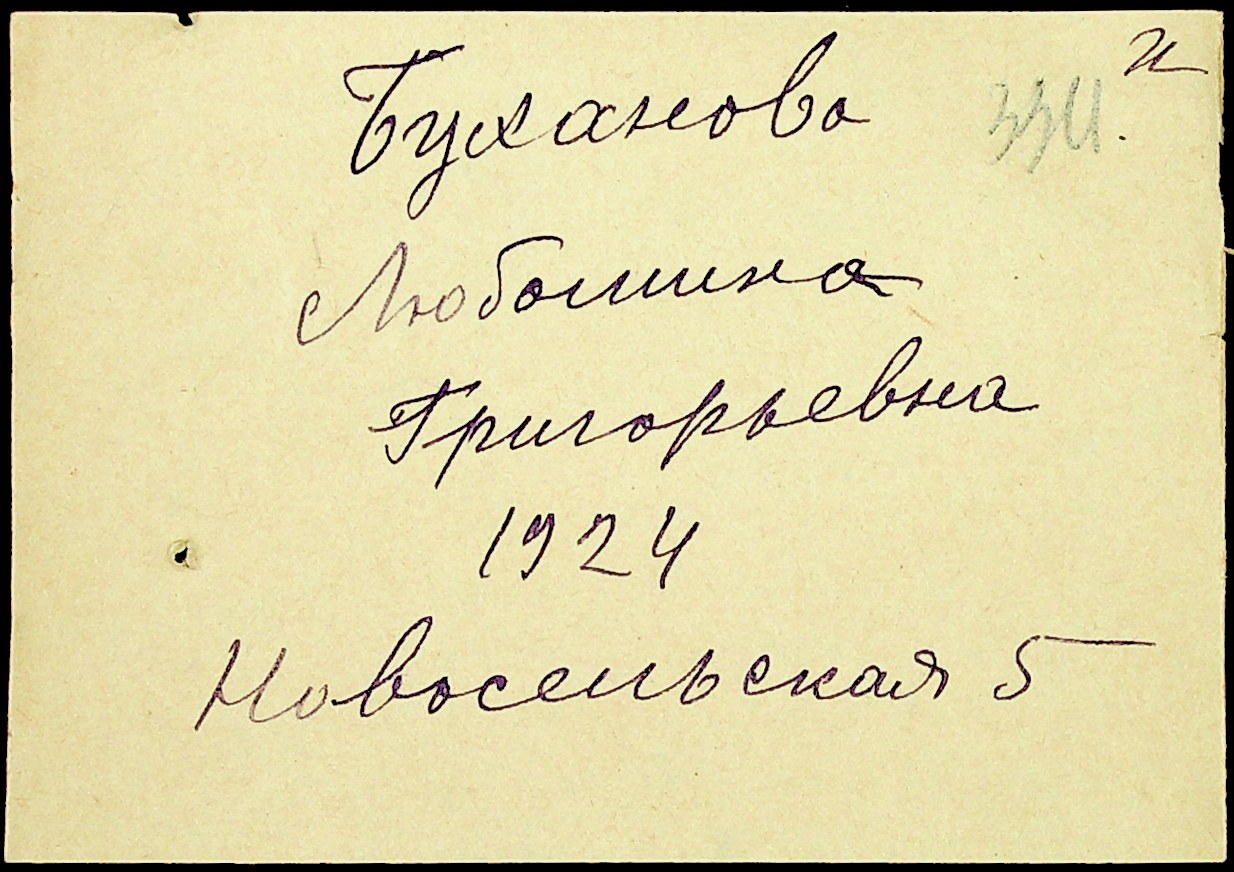 и
334.
Буханова
Любомина
Григорьевна
1924
Новосельская 5